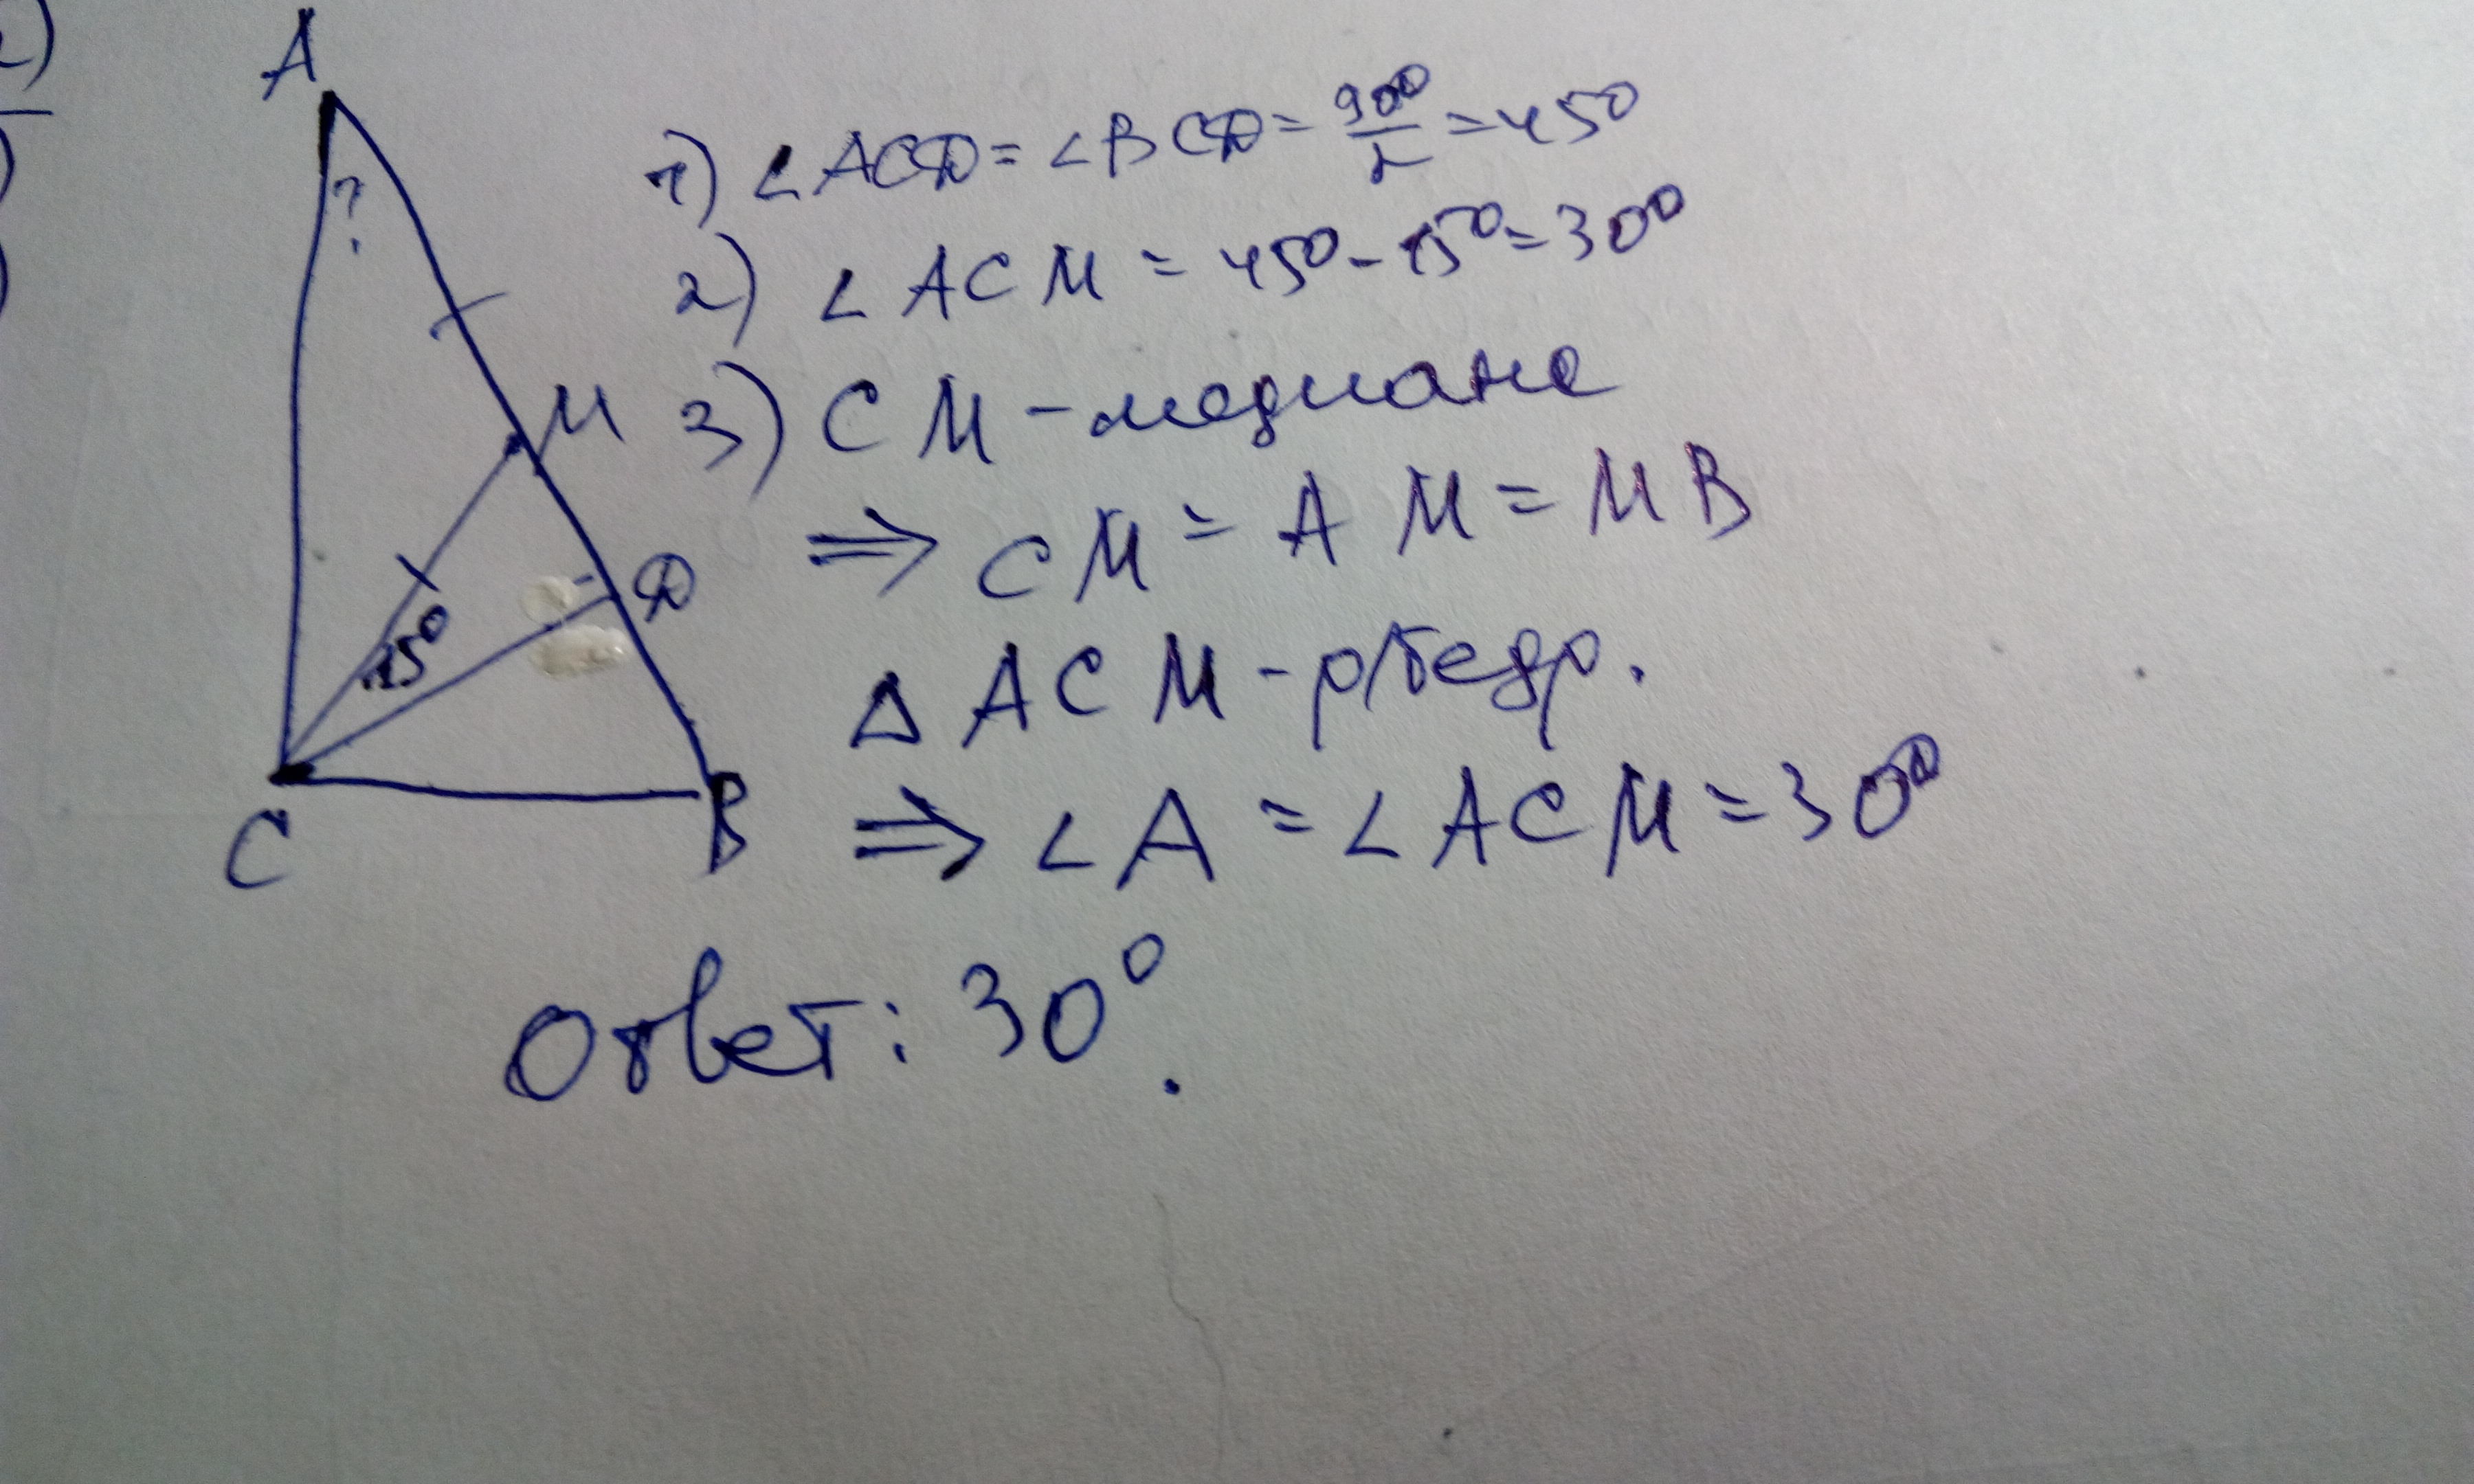 2)
A
?
M
D
15°
C
B
1) ∠ACD = ∠BCD = 90°/2 = 45°
2) ∠ACM = 45° - 15° = 30°
3) CM - медиана
⇒ CM = AM = MB
△ ACM - р/бедр.
⇒ ∠A = ∠ACM = 30°
Ответ: 30°.